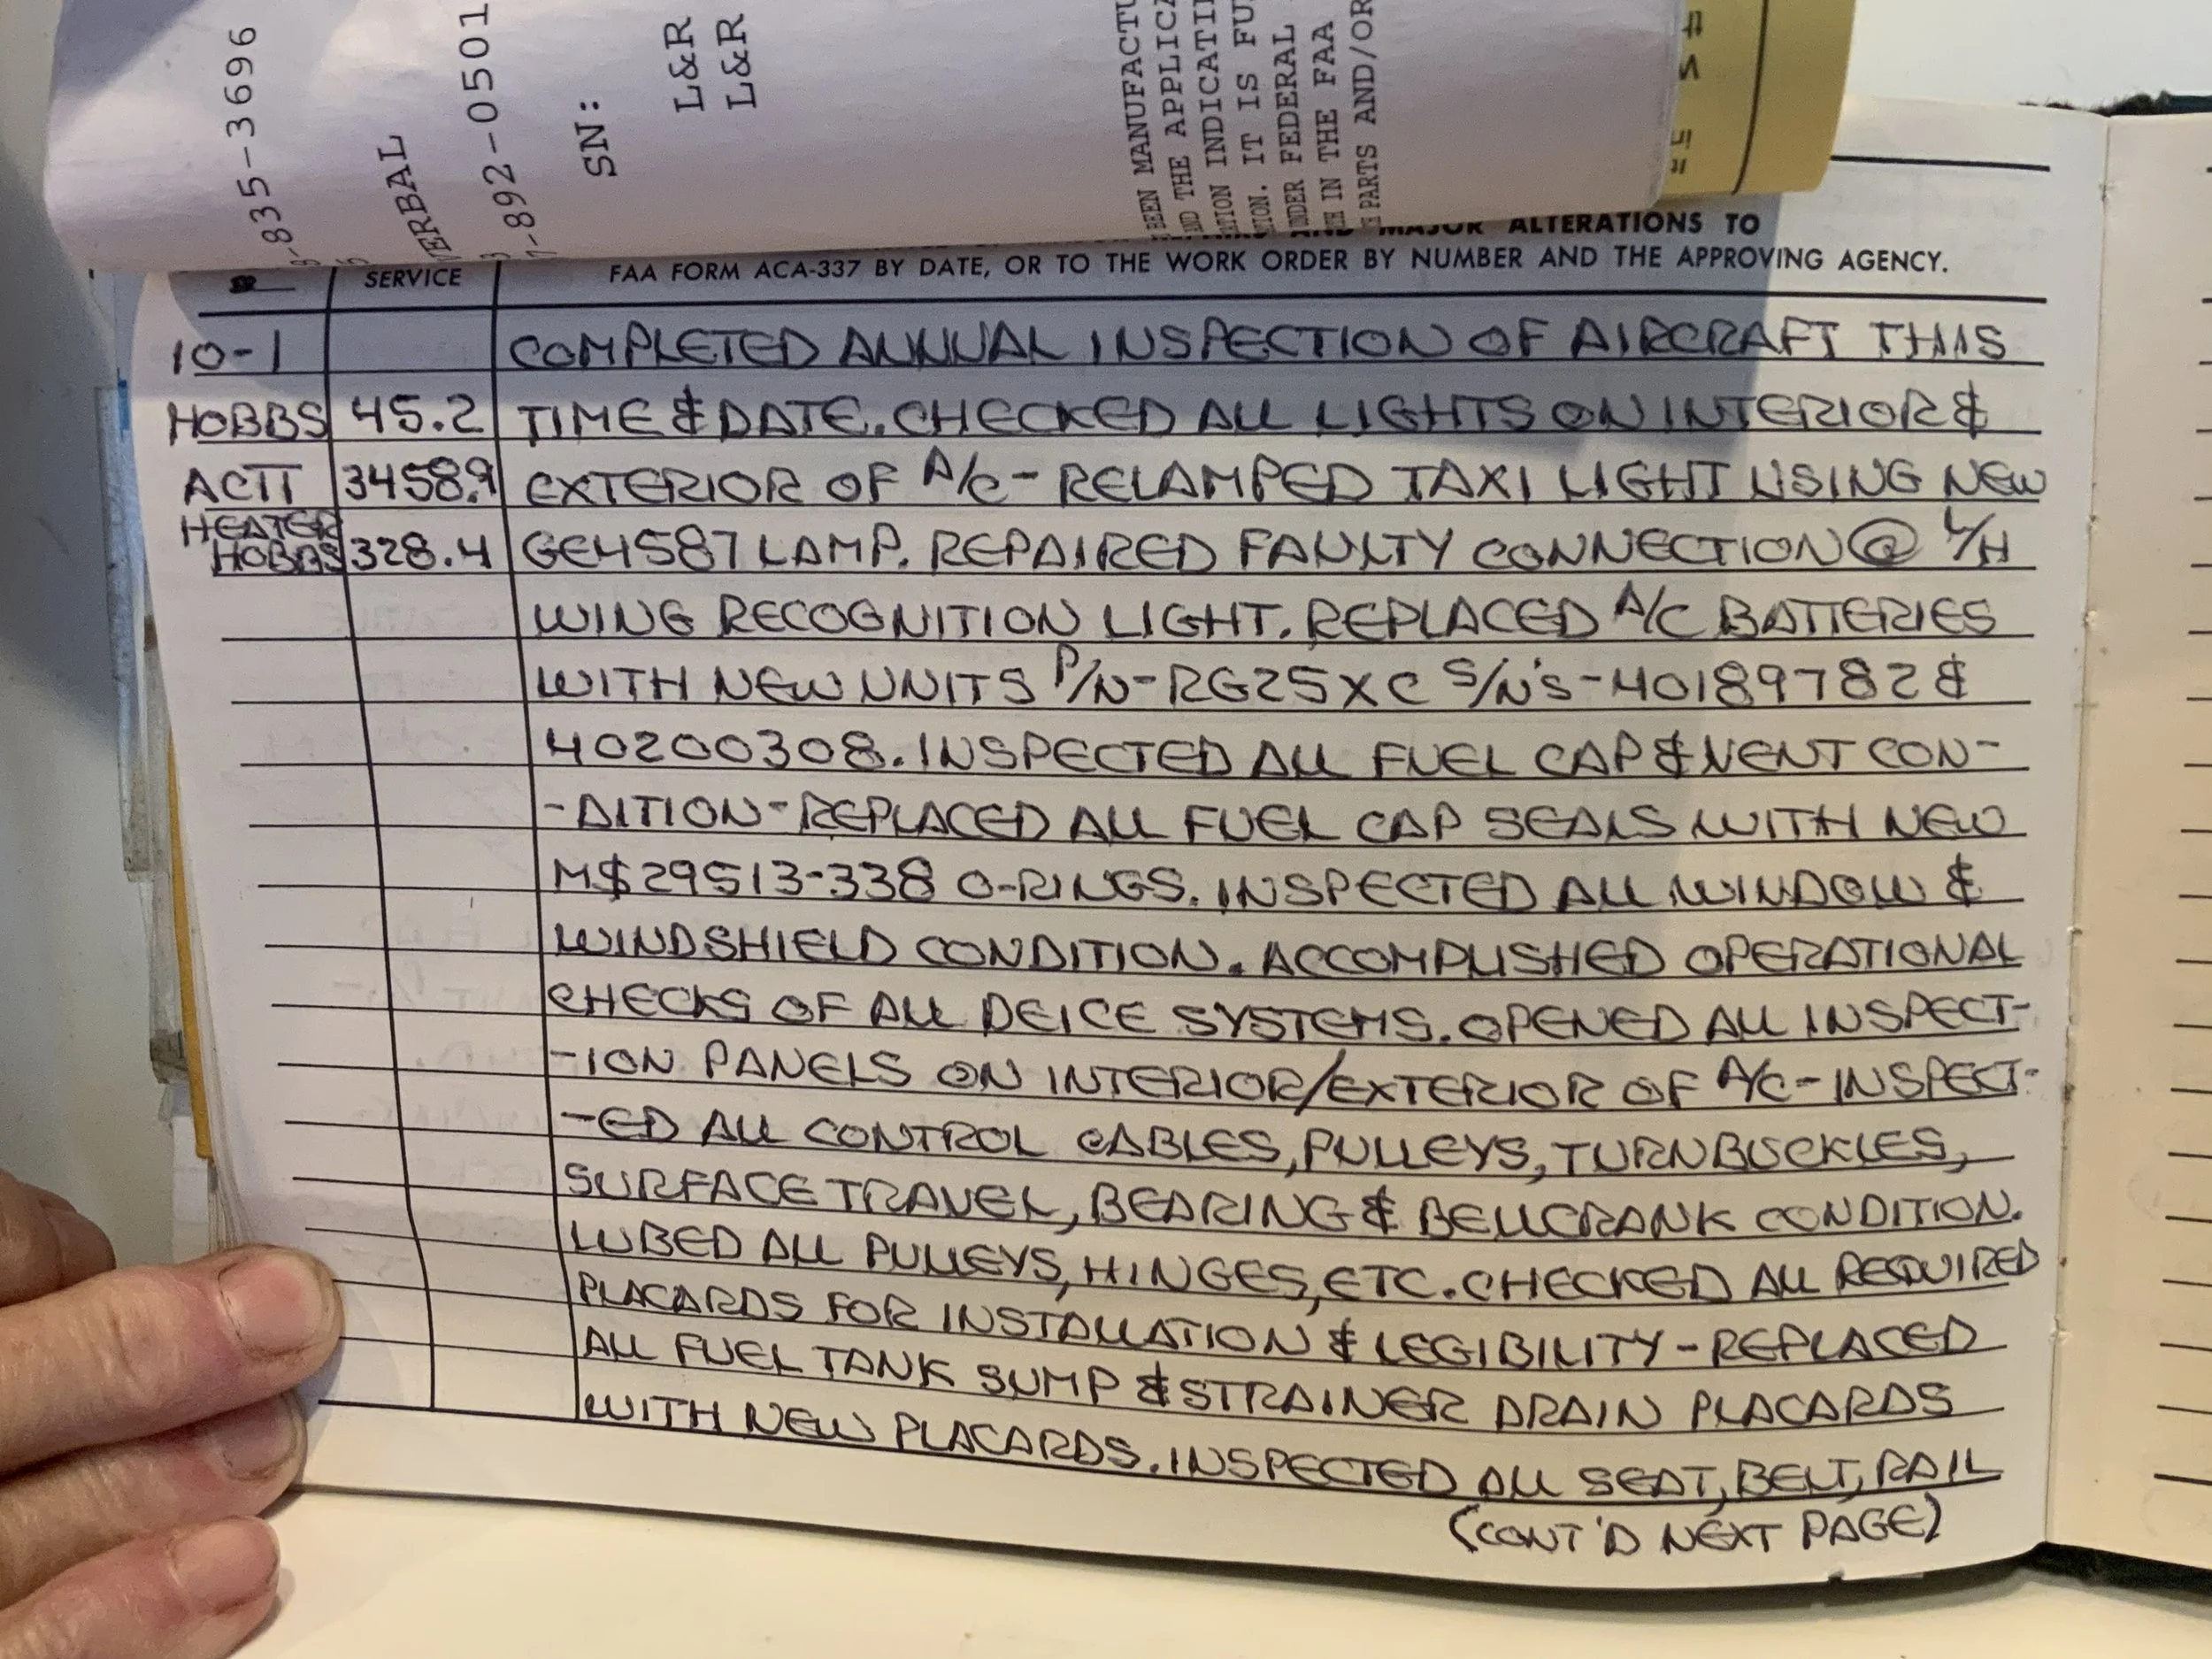 835-3696
VERBAL
7-892-0501
SN:
L&R
L&R
BEEN MANUFACTU
THE APPLICA
INDICATI
IT IS FU
UNDER FEDERAL
IN THE FAA
PARTS AND/OR
MAJOR ALTERATIONS TO
SERVICE FAA FORM ACA-337 BY DATE, OR TO THE WORK ORDER BY NUMBER AND THE APPROVING AGENCY.
10-1 COMPLETED ANNUAL INSPECTION OF AIRCRAFT THIS
HOBBS 45.2 TIME & DATE. CHECKED ALL LIGHTS ON INTERIOR &
ACTT 3458.9 EXTERIOR OF A/C - RELAMPED TAXI LIGHT USING NEW
HEATER
HOBBS 328.4 GE4587 LAMP. REPAIRED FAULTY CONNECTION @ L/H
WING RECOGNITION LIGHT. REPLACED A/C BATTERIES
WITH NEW UNITS P/N-RG25XC S/N'S-40189782 &
40200308. INSPECTED ALL FUEL CAP & VENT CON-
-DITION-REPLACED ALL FUEL CAP SEALS WITH NEW
MS29513-338 O-RINGS. INSPECTED ALL WINDOW &
WINDSHIELD CONDITION. ACCOMPLISHED OPERATIONAL
CHECKS OF ALL DEICE SYSTEMS. OPENED ALL INSPECT-
-ION PANELS ON INTERIOR/EXTERIOR OF A/C-INSPECT-
-ED ALL CONTROL CABLES, PULLEYS, TURNBUCKLES,
SURFACE TRAVEL, BEARING & BELLCRANK CONDITION.
LUBED ALL PULLEYS, HINGES, ETC. CHECKED ALL REQUIRED
PLACARDS FOR INSTALLATION & LEGIBILITY-REPLACED
ALL FUEL TANK SUMP & STRAINER DRAIN PLACARDS
WITH NEW PLACARDS. INSPECTED ALL SEAT, BELT, RAIL
(CONT'D NEXT PAGE)